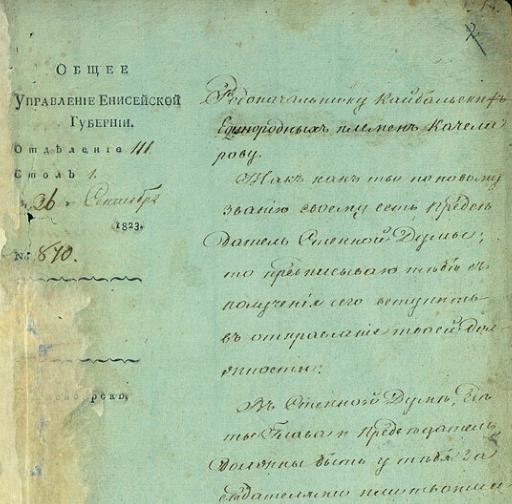 Общее
Управленіе Енисейской
Губерніи.
Отдѣленіе III.
Столъ 1.
26 Сентября
1823.
№ 870.
Родоначальнику Кайбальскихъ
Единородныхъ племенъ Качела
рову.
Такъ какъ ты по новому
званію своему есть Предсѣ
датель Степной Думы;
то предписываю тебѣ съ
полученія сего вступить
въ отправленіе твоей дол
жности:
Въ Степной Думѣ, гдѣ
ты Глава и Предсѣдатель
должны быть у тебя За
сѣдателями